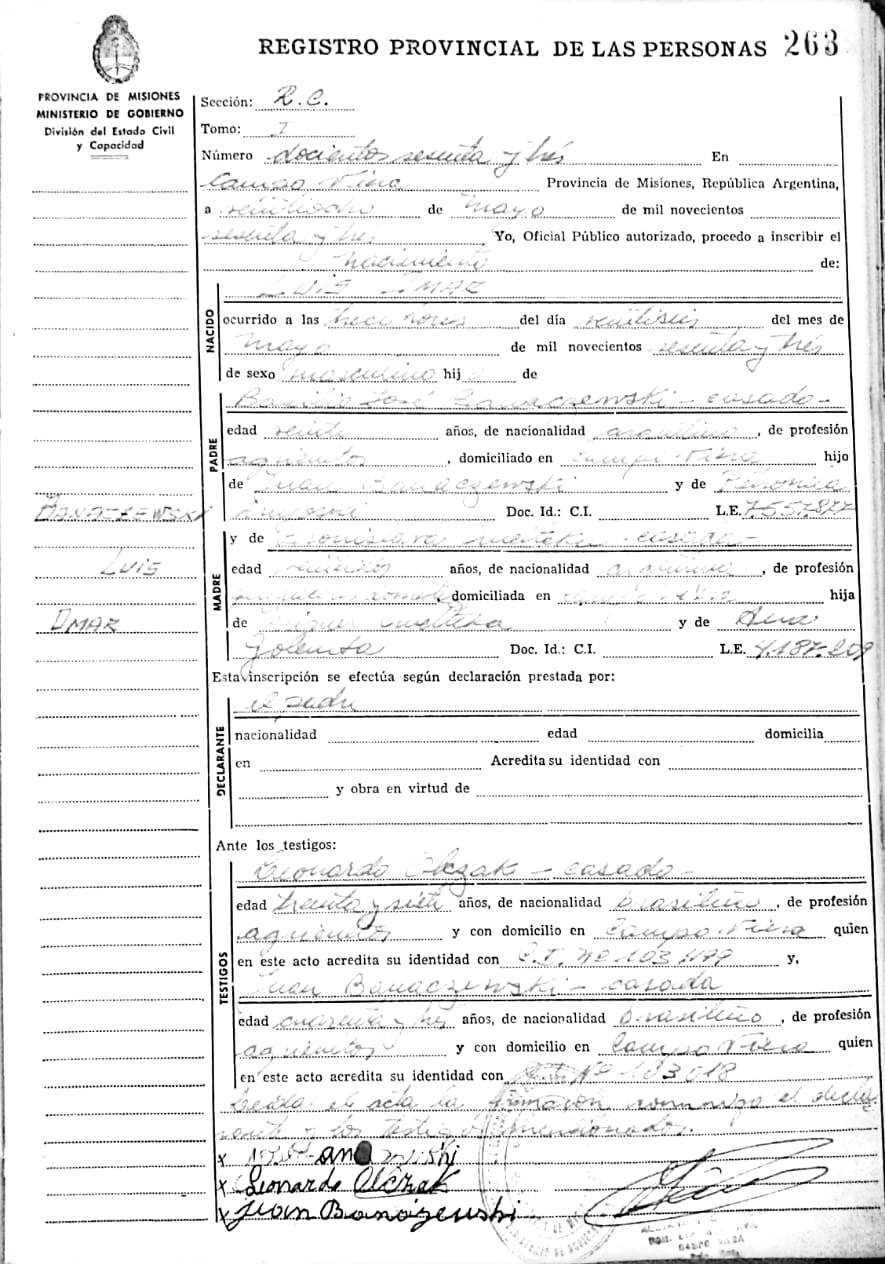 REGISTRO PROVINCIAL DE LAS PERSONAS 263
PROVINCIA DE MISIONES
MINISTERIO DE GOBIERNO
División del Estado Civil
y Capacidad
Sección: R.C.
Tomo: I
Número docientos sesenta y trés En
Campo Viera Provincia de Misiones, República Argentina,
a veintiocho de Mayo de mil novecientos
sesenta y tres Yo, Oficial Público autorizado, procedo a inscribir el
nacimiento de:
LUIS OMAR
NACIDO
ocurrido a las trece horas del día veintiseis del mes de
Mayo de mil novecientos sesenta y trés
de sexo masculino hijo de
PADRE
Basilio José Banaczewski - casado -
edad veinte años, de nacionalidad argentino, de profesión
agricultor, domiciliado en Campo Viera hijo
de Juan Banaczewski y de
Doc. Id.: C.I. L.E. 7.557.877
BANACZEWSKI
LUIS
OMAR
MADRE
y de casada -
edad años, de nacionalidad argentina, de profesión
domiciliada en Campo Viera hija
de y de Ana
Doc. Id.: C.I. L.E. 4.187.209
Esta inscripción se efectúa según declaración prestada por:
DECLARANTE
el padre
nacionalidad edad domicilia
en Acredita su identidad con
y obra en virtud de
Ante los testigos:
TESTIGOS
Leonardo Olczak - casado -
edad treinta y siete años, de nacionalidad brasileño, de profesión
agricultor y con domicilio en Campo Viera quien
en este acto acredita su identidad con C.I. Nº 103 y,
Juan Banaczewski - casado
edad cuarenta y tres años, de nacionalidad brasileño, de profesión
agricultor y con domicilio en Campo Viera quien
en este acto acredita su identidad con Nº 103018
Leida el acta la firmaron conmigo el decla
rante y los testigos mencionados.
x
x Leonardo Olczak
x Juan Banaczewski